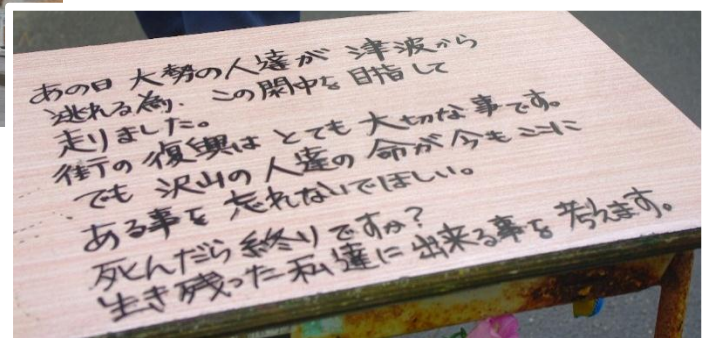 あの日 大勢の人達が 津波から
逃れる為、この閖中を 目指して
走りました。
街の復興は とても 大切な事です。
でも 沢山の人達の 命が今もここに
ある事を 忘れないでほしい。
死んだら終りですか？
生き残った私達に 出来る事を 考えます。